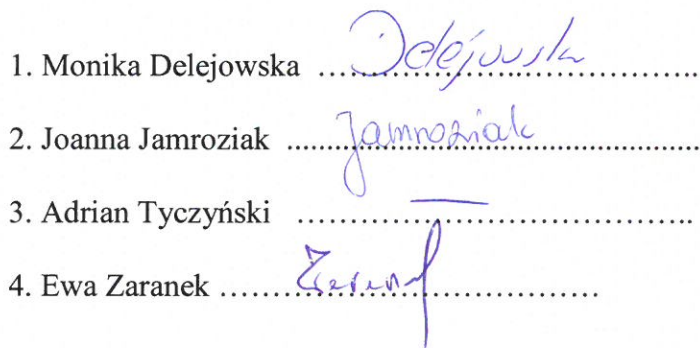 1. Monika Delejowska ......Delejowska..................
2. Joanna Jamroziak ........Jamroziak........................
3. Adrian Tyczyński ..............................................
4. Ewa Zaranek ...........................................